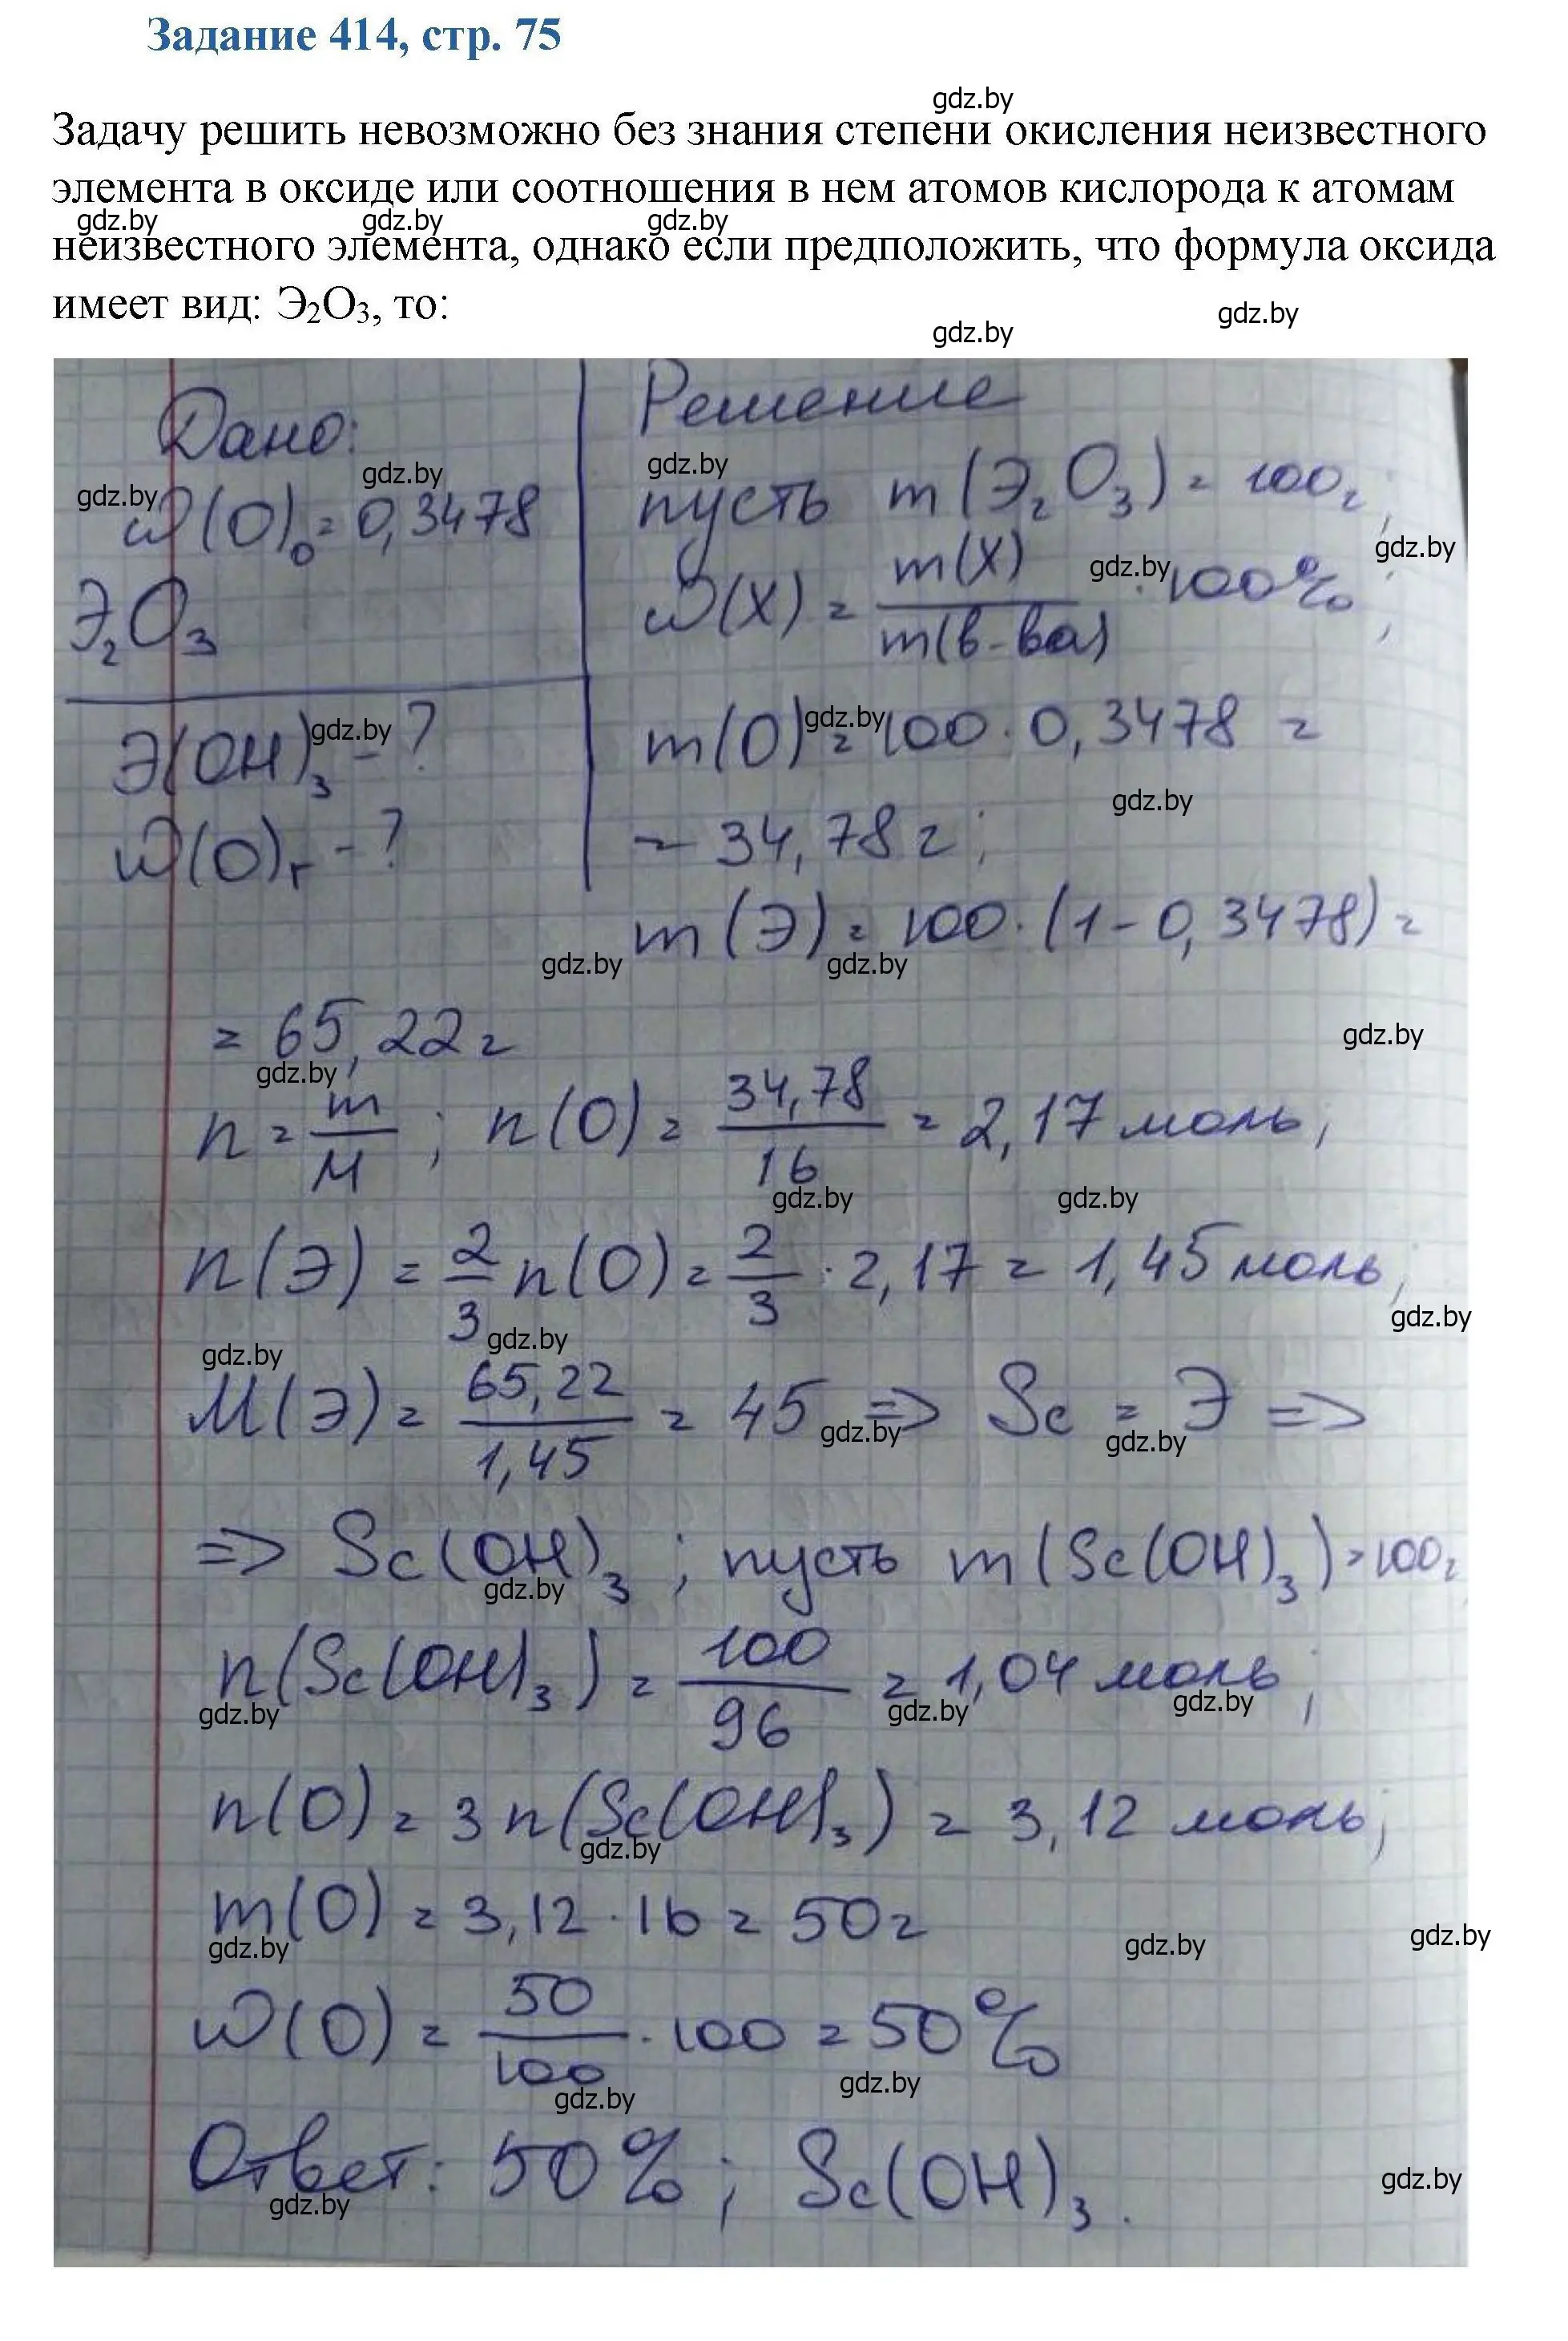 Задание 414, стр. 75
gdz.by
Задачу решить невозможно без знания степени окисления неизвестного
элемента в оксиде или соотношения в нем атомов кислорода к атомам
gdz.by gdz.by gdz.by
неизвестного элемента, однако если предположить, что формула оксида
имеет вид: Э₂О₃, то:
gdz.by
gdz.by
Дано:
ω(O)₀ = 0,3478
Э₂O₃
Э(OH)₃ - ?
ω(O)г - ?
Решение
пусть m(Э₂O₃) = 100г;
ω(X) = m(X)/m(в-ва) · 100%;
m(O) = 100 · 0,3478 =
= 34,78 г;
m(Э) = 100 · (1 - 0,3478) =
= 65,22 г
n = m/M ; n(O) = 34,78/16 = 2,17 моль;
n(Э) = 2/3 n(O) = 2/3 · 2,17 = 1,45 моль;
M(Э) = 65,22/1,45 = 45 => Sc = Э =>
=> Sc(OH)₃ ; пусть m(Sc(OH)₃) = 100г
n(Sc(OH)₃) = 100/96 = 1,04 моль;
n(O) = 3n(Sc(OH)₃) = 3,12 моль;
m(O) = 3,12 · 16 = 50 г
ω(O) = 50/100 · 100 = 50%
Ответ: 50%; Sc(OH)₃.